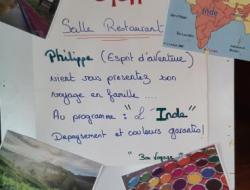 Salle Restaurant
Philippe (Esprit d'aventure)
vient vous presentez son
voyage en famille ....
Au programme : "L'Inde"
Depaysement et couleurs garantis!
"Bon Voyage
Inde